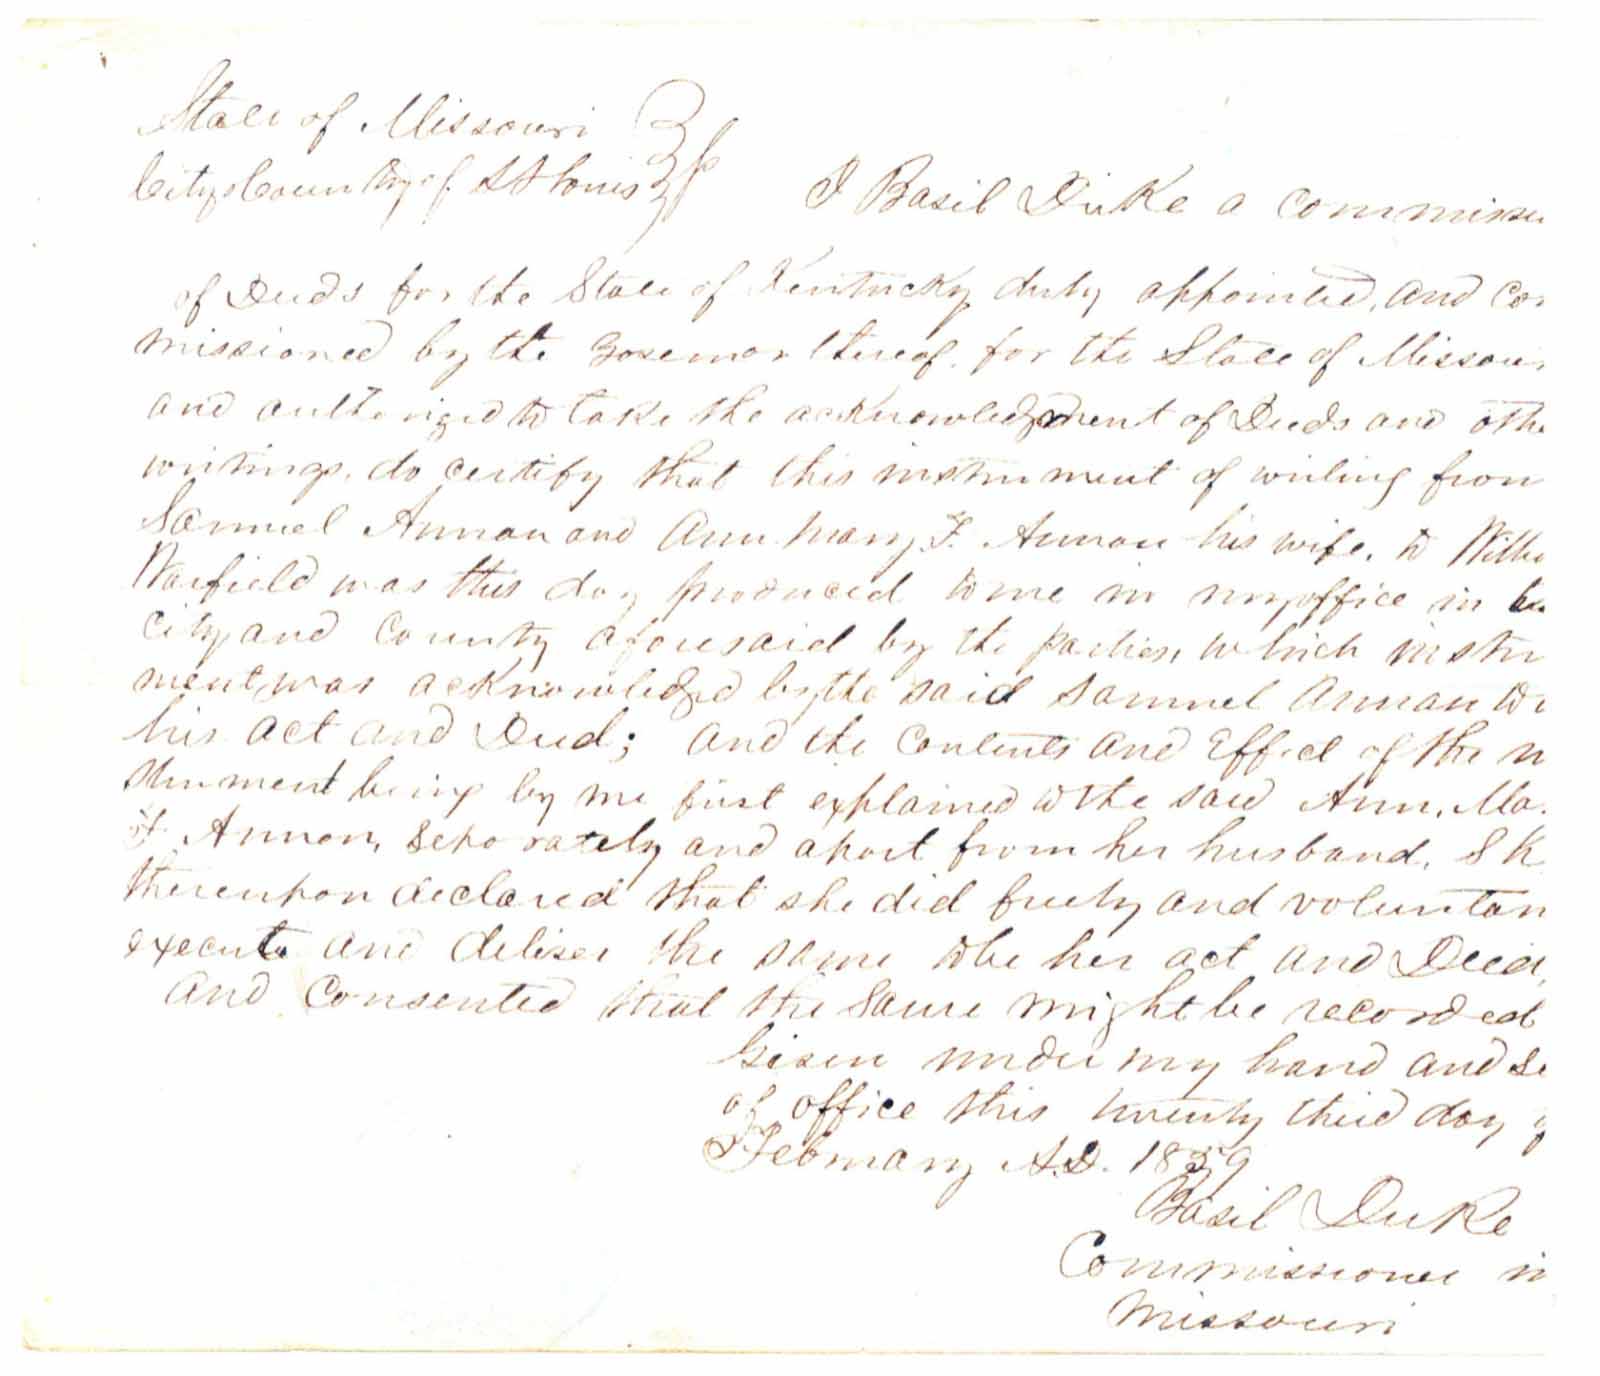 State of Missouri
City & County of St Louis } ss I Basil Duke a commissi
of Deeds for the State of Kentucky duly appointed, and Com
missioned by the Governor thereof. for the State of Missour
and authorized to take the acknowledgment of Deeds and othe
writings. do certify that this instrument of writing from
Samuel Annan and Ann Mary F. Annan his wife. to Willia
Warfield was this day produced to me in my office in
City and County aforesaid by the parties, which instru
ment, was acknowledged by the said Samuel Annan to
his act and Deed; and the Contents and Effect of the in
strument being by me first explained to the said Ann, Ma.
F. Annan, separately and apart from her husband, Sh
thereupon declared that she did freely and voluntar
execute and deliver the same to be her act and Deed,
and consented that the same might be recorded
Given under my hand and se
of office this twenty third day
February A.D. 1859
Basil Duke
Commissioner in
Missouri